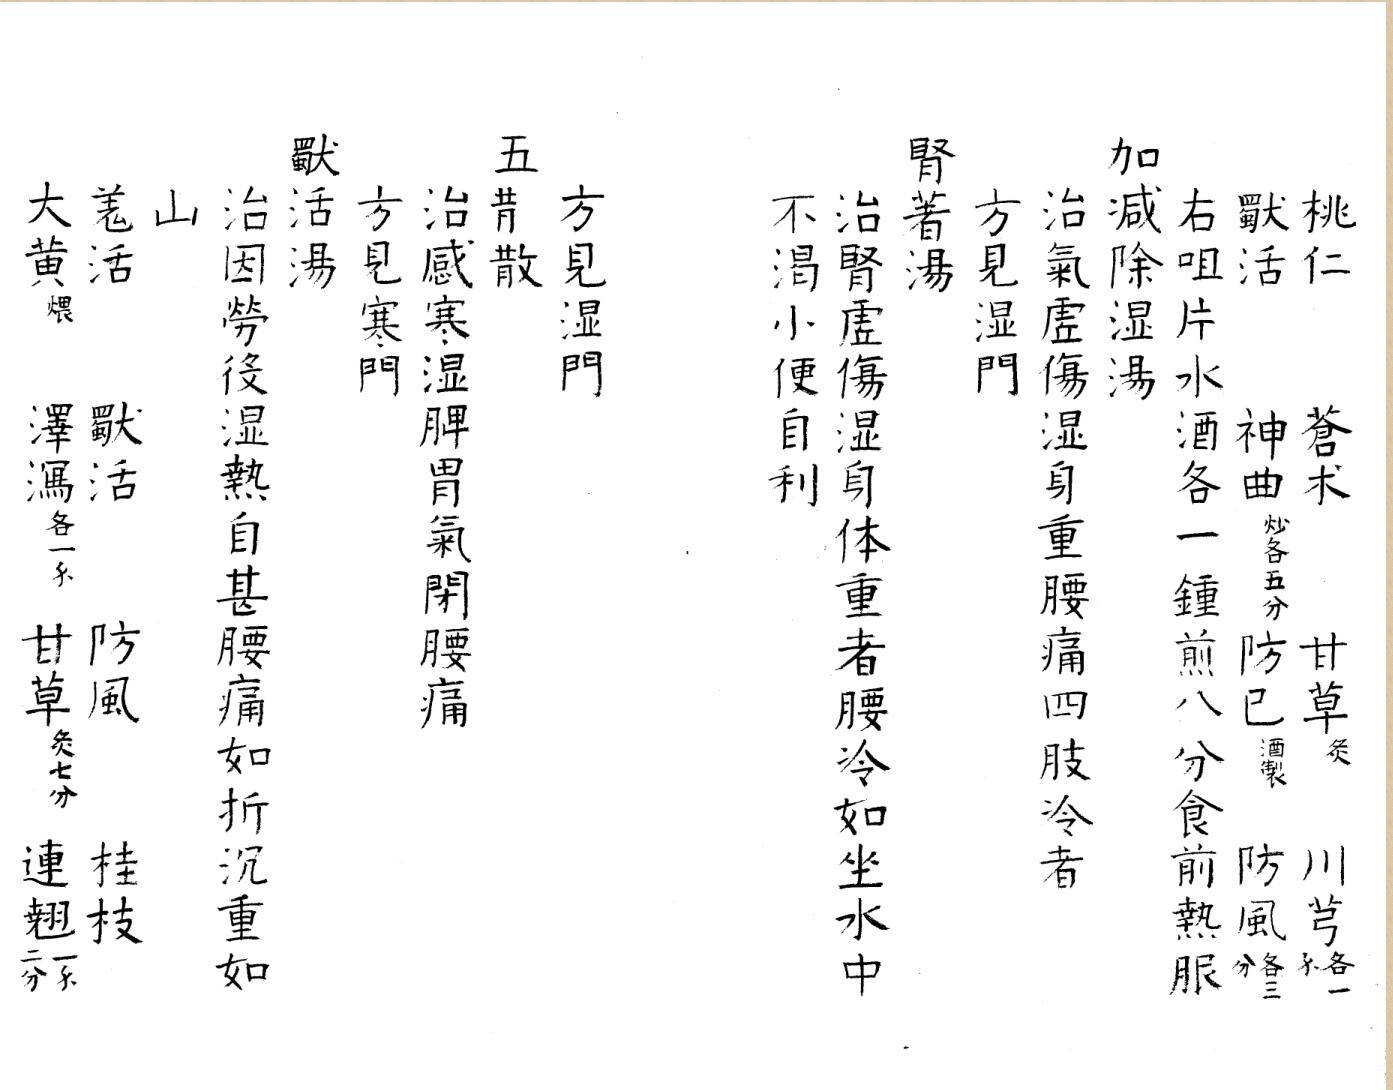 桃仁 蒼朮 甘草炙 川芎各一
獸活 神曲炒各五分 防已酒製 防風各三分
右咀片水酒各一鍾煎八分食前熱服
加減除湿湯
治氣虛傷湿身重腰痛四肢冷者
方見湿門
腎著湯
治腎虛傷湿身体重者腰冷如坐水中
不渇小便自利
方見湿門
五散
治感寒湿脾胃氣閉腰痛
方見寒門
獸活湯
治因勞役湿熱自甚腰痛如折沉重如
山
羗活 獸活 防風 桂枝
大黄煨 澤瀉各一 甘草炙七分 連翹一二分